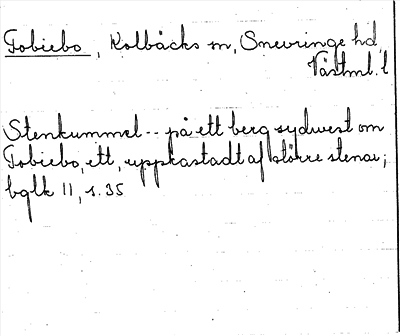 Tobiebo, Kolbäcks sn, Snevringe hd,
Västml. l
Stenkummel -- på ett berg sydvest om
Tobiebo, ett, uppkastadt af större stenar;
bglk II, s. 35